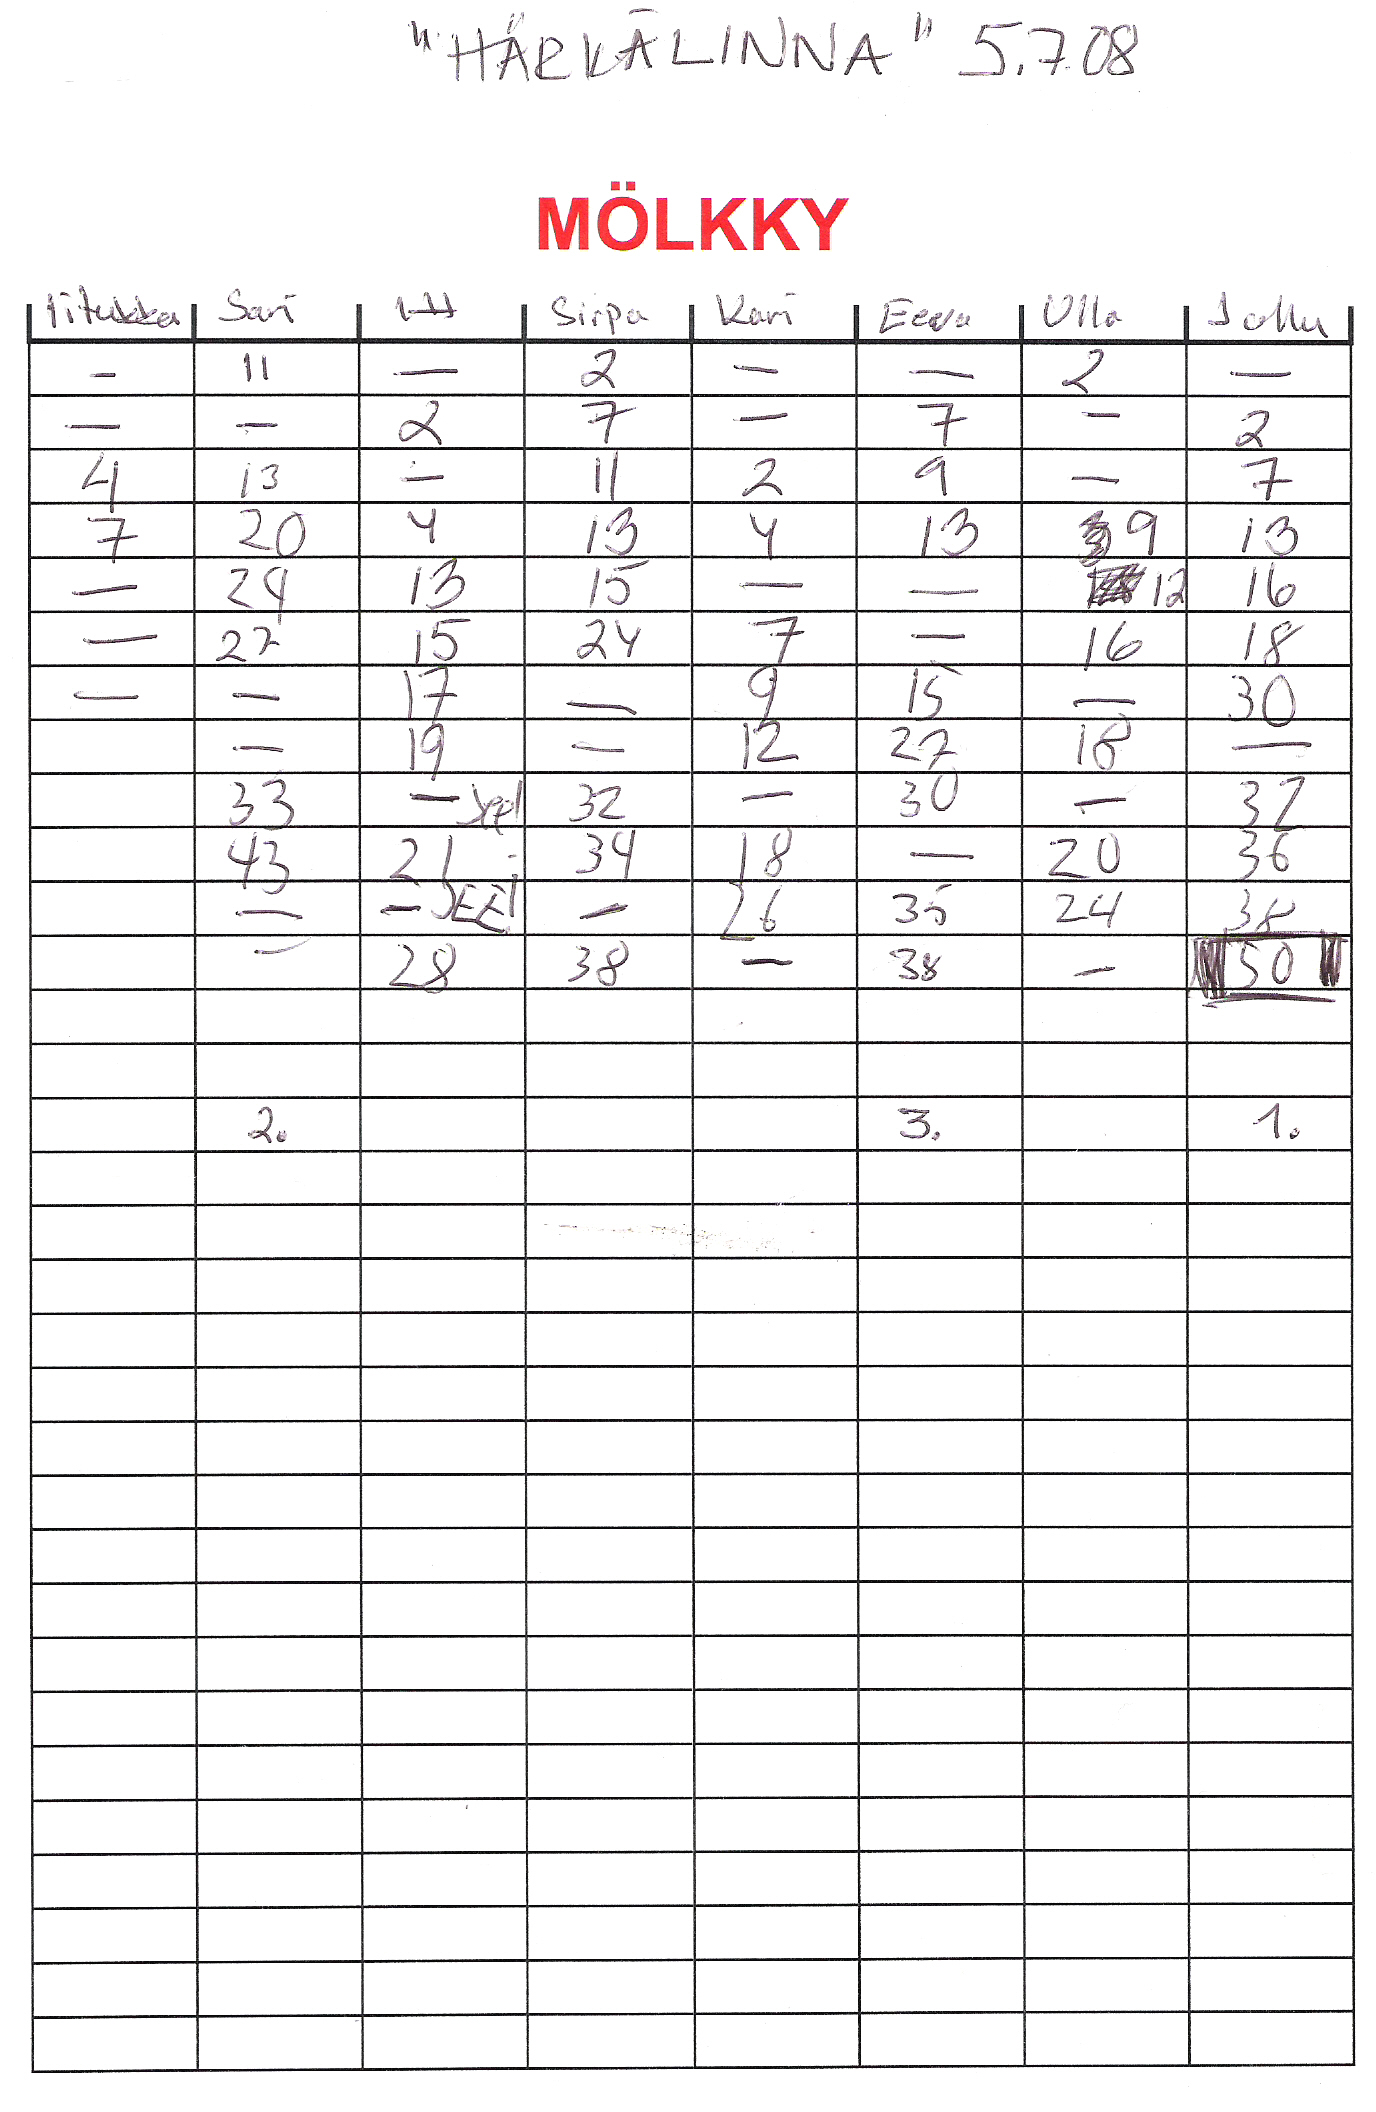 "HÄRKÄLINNA" 5.7.08
MÖLKKY
Titukka Sari Sirpa Kari Eeva Ulla Jollu
- 11 — 2 — — 2 —
— — 2 7 — 7 — 2
4 13 — 11 2 9 — 7
7 20 4 13 4 13 9 13
— 24 13 15 — — 12 16
— 27 15 24 7 — 16 18
— — 17 — 9 15 — 30
— 19 — 12 27 18 —
33 — Jee! 32 — 30 — 32
43 21 34 18 — 20 36
— — JEE! — 26 35 24 38
— 28 38 — 38 — 50
2. 3. 1.